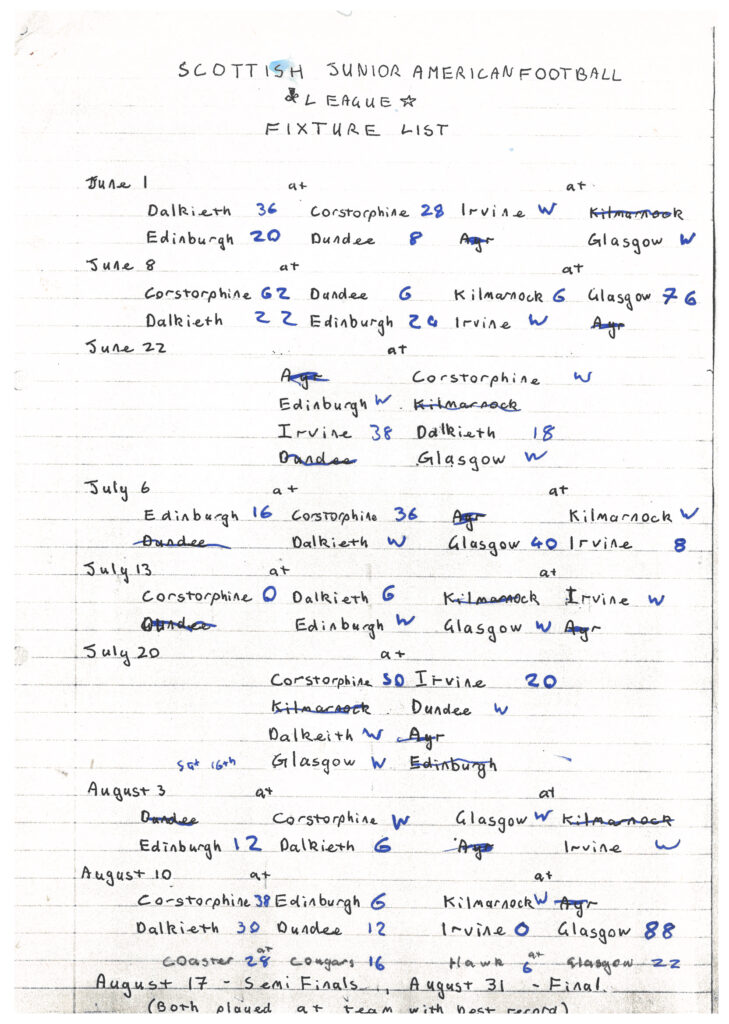 SCOTTISH JUNIOR AMERICAN FOOTBALL
& LEAGUE ☆
FIXTURE LIST
June 1 at at
Dalkieth 36 Corstorphine 28 Irvine W Kilmarnock
Edinburgh 20 Dundee 8 Ayr Glasgow W
June 8 at at
Corstorphine 62 Dundee 6 Kilmarnock 6 Glasgow 76
Dalkieth 22 Edinburgh 20 Irvine W Ayr
June 22 at
Ayr Corstorphine W
Edinburgh W Kilmarnock
Irvine 38 Dalkieth 18
Dundee Glasgow W
July 6 at at
Edinburgh 16 Corstorphine 36 Ayr Kilmarnock W
Dundee Dalkieth W Glasgow 40 Irvine 8
July 13 at at
Corstorphine 0 Dalkieth 6 Kilmarnock Irvine W
Dundee Edinburgh W Glasgow W Ayr
July 20 at
Corstorphine 50 Irvine 20
Kilmarnock Dundee W
Dalkeith W Ayr
Sat 16th Glasgow W Edinburgh
August 3 at at
Dundee Corstorphine W Glasgow W Kilmarnock
Edinburgh 12 Dalkieth 6 Ayr Irvine W
August 10 at at
Corstorphine 38 Edinburgh 6 Kilmarnock W Ayr
Dalkieth 30 Dundee 12 Irvine 0 Glasgow 88
Coaster 28 at Cougars 16 Hawk 6 at Glasgow 22
August 17 - Semi Finals,, August 31 - Final
(Both played at team with best record)